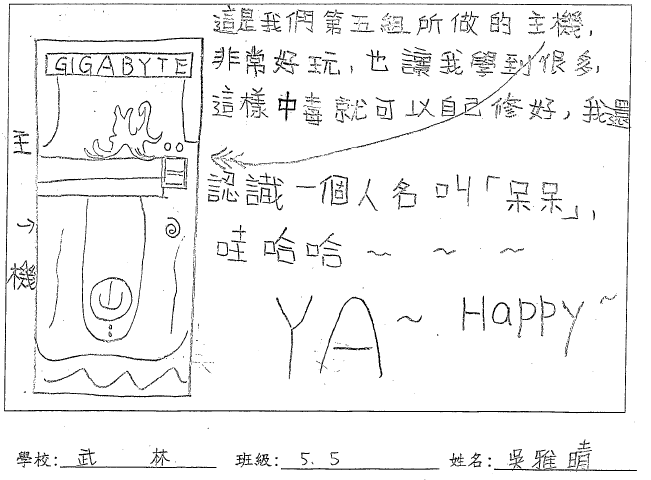 這是我們第五組所做的主機,
非常好玩,也讓我學到很多,
這樣中毒就可以自己修好,我還
認識一個人名叫「呆呆」,
哇哈哈~ ~ ~
YA~ Happy~
GIGABYTE
主
→
機
學校: 武 林 班級: 5. 5 姓名: 吳雅晴